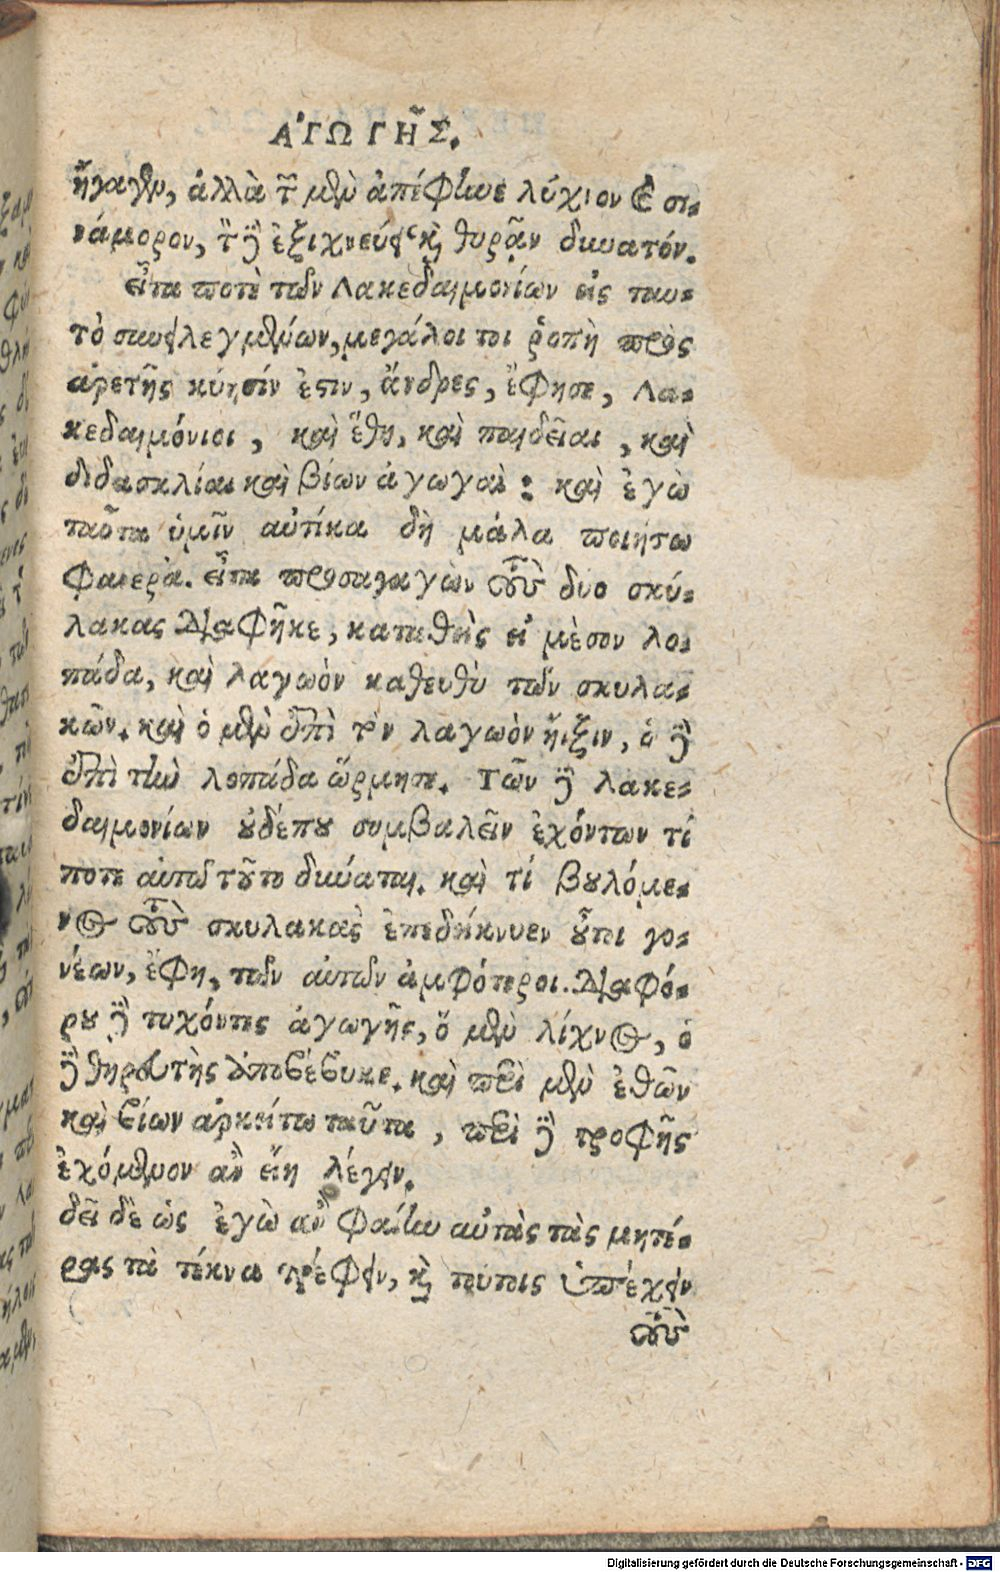 ἈΓΩΓΗ͂Σ.
ἤγαγεν, ἀλλὰ τ̃ μὲν ἀπέφηνε λύχιον ϗ σι-
νάμορον, τ̃ δ̀ ἐξιχνεύειν ϗ θυρᾷν δυνατόν.
εἶτα ποτὲ τῶν Λακεδαιμονίων εἰς ταυ-
τὸ συνειλεγμένων, μεγάλοι τοι ῥοπὴ πρὸς
ἀρετῆς κύησίν ἐστιν, ἄνδρες, ἔφησε, Λα-
κεδαιμόνιοι, καὶ ἔθη, καὶ παιδεῖαι, καὶ
διδασκλίαι καὶ βίων ἀγωγαὶ: καὶ ἐγὼ
ταῦτα ὑμῖν αὐτίκα δὴ μάλα ποιήσω
φανερά. εἶτα προσαγαγὼν τοὺς δυο σκύ-
λακας διαφῆκε, καταθεὶς εἰ μὲσον λο-
πάδα, καὶ λαγωὸν κατευθὺ τῶν σκυλα-
κῶν. καὶ ὁ μὲν ἐπὶ τὸν λαγωὸν ἤϊξιν, ὁ δ̀
ἐπὶ τὴν λοπάδα ὥρμησε. Τῶν δ̀ λακε-
δαιμονίων οὐδέπου συμβαλεῖν ἐχόντων τί
ποτε αὐτῷ τοῦτο δύναται. καὶ τί βουλόμε-
νος τοὺς σκυλακὰς ἐπεδήκνυεν οὗτοι γο-
νέων, ἔφη, τῶν αὐτῶν ἀμφότεροι. διαφό-
ρου δ̀ τυχόντες ἀγωγῆς, ὅ μὲν λίχνος, ὁ
δ̀ θηρευτὴς ἀποβέβυκε. καὶ περὶ μὲν ἐθῶν
καὶ βίων ἀρκείτω ταῦτα, περὶ δ̀ τροφῆς
ἐχόμενον ἂν εἴη λέγειν.
δεῖ δὲ ὡς ἐγὼ ἂν φαίην αὐτὰς τὰς μητέ-
ρας τὰ τέκνα τρέφειν, ϗ τούτοις ὑπέχειν
τοὺς
Digitalisierung gefördert durch die Deutsche Forschungsgemeinschaft - DFG